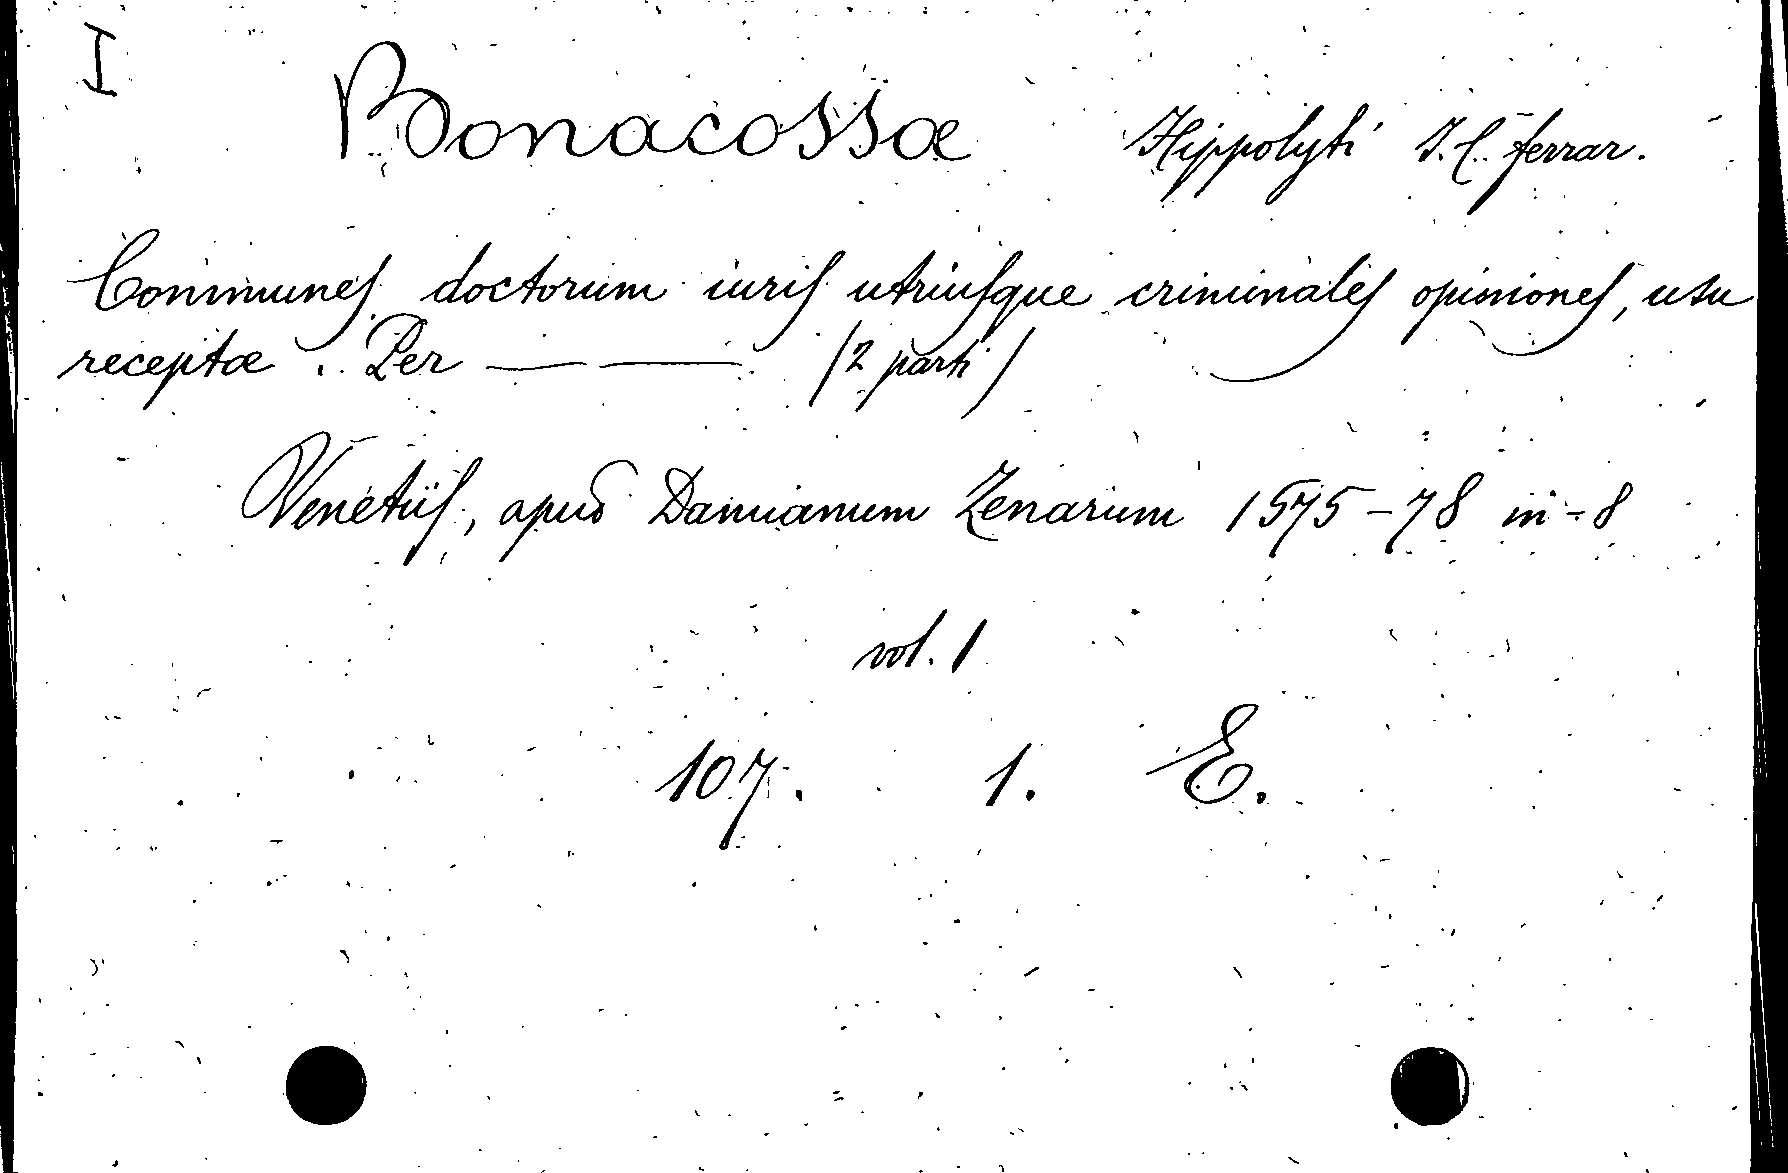 I
Bonacossæ Hippolyti I. C. ferrar.
Communes doctorum iuris utriusque criminales opiniones, usu
receptæ. Per —— —— (2 parti)
Venetiis, apud Damianum Zenarium 1575-78 in-8
vol. 1
107. 1. E.